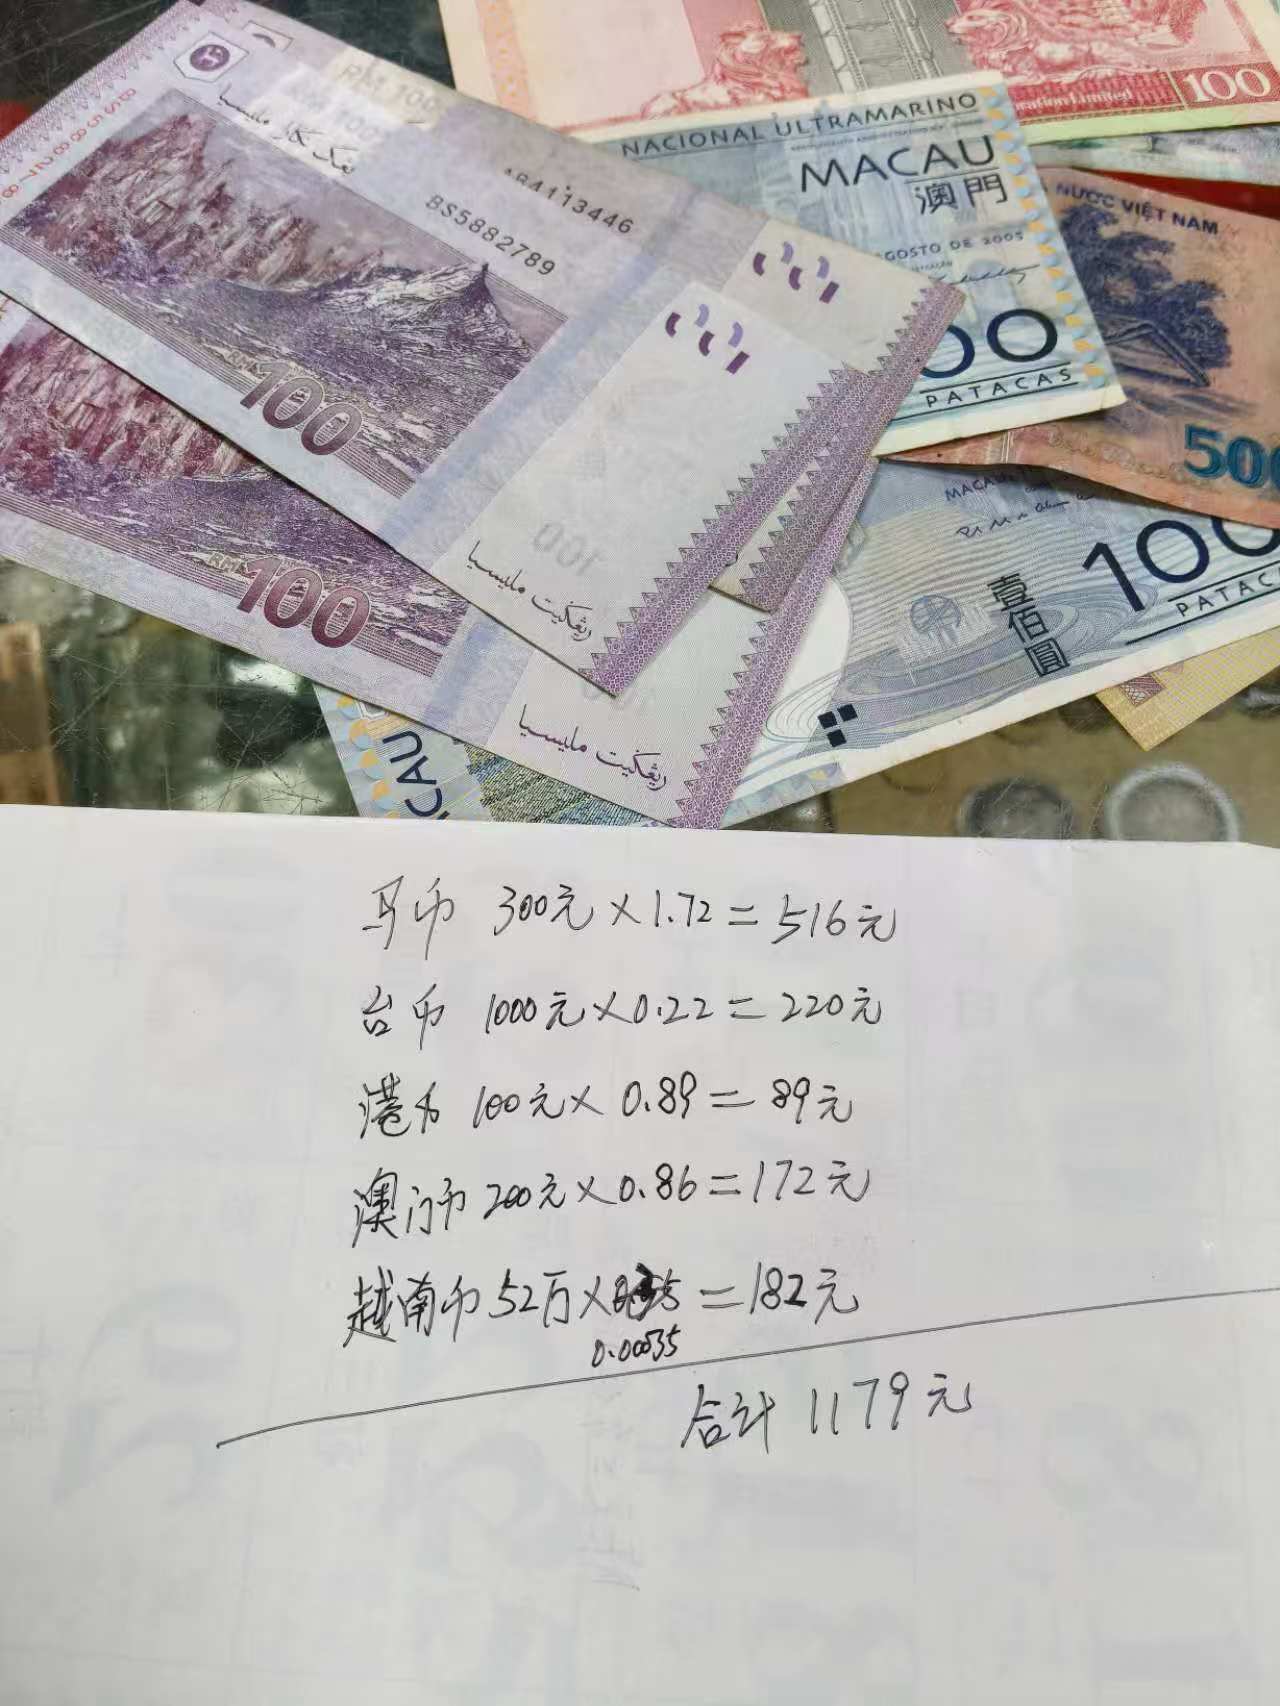 RM 100
AB4113446
BS5882789
100
100
RM 100
NACIONAL ULTRAMARINO
MACAU
澳門
AGOSTO DE 2005
00
PATACAS
100
NƯỚC VIỆT NAM
500
MACAU
壹佰圓
100
PATACA
CAU
نڬارا مليسيا
رڠݢيت مليسيا
رڠݢيت مليسيا
马币 300元×1.72=516元
台币 1000元×0.22=220元
港币 100元×0.89=89元
澳门币 200元×0.86=172元
越南币 52万× =182元
0.00035
合计 1179元